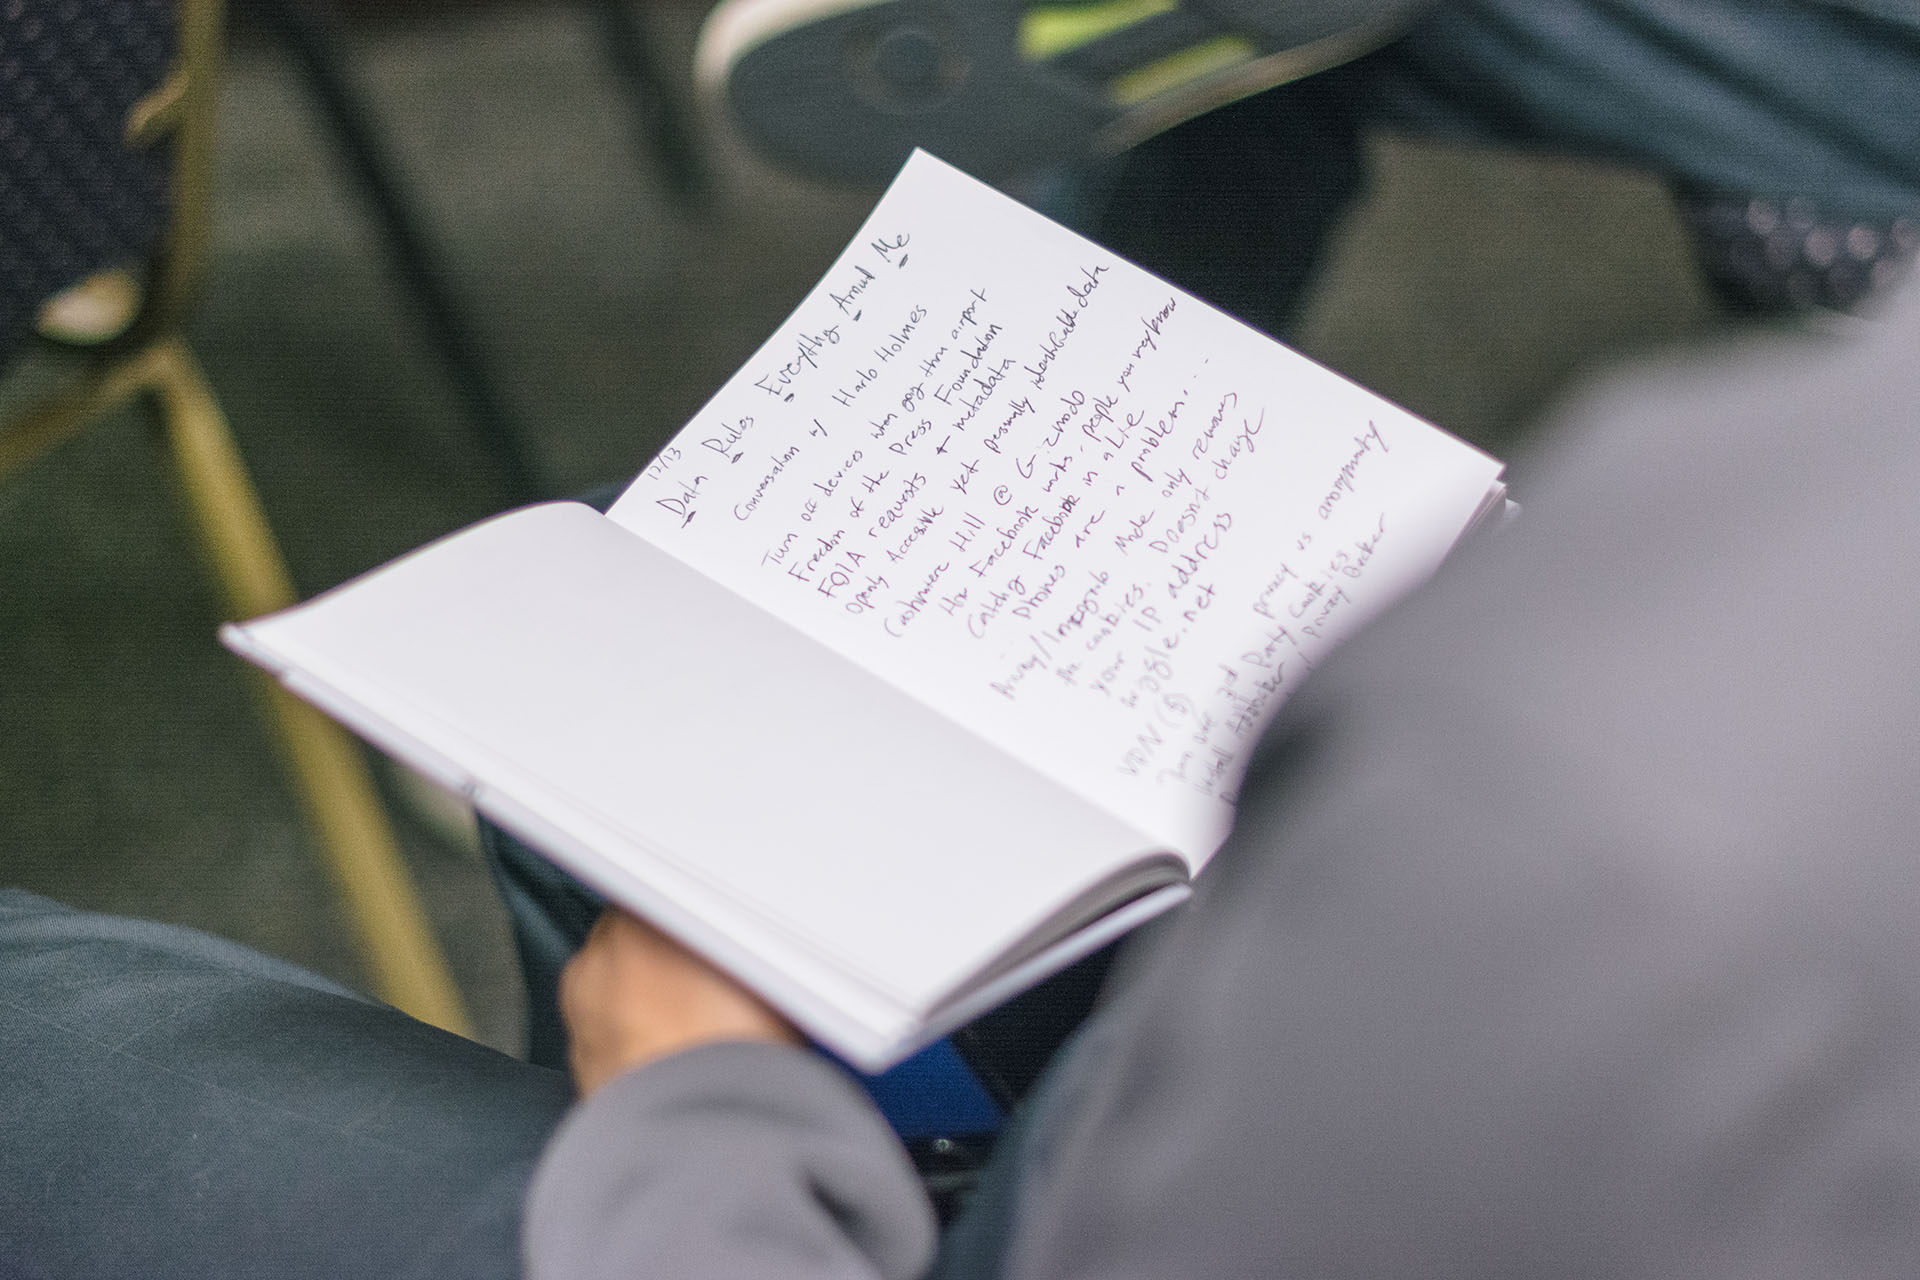 12/13
Data Rules Everything Around Me
Conversation w/ Harlo Holmes
Turn off devices when going thru airport
Freedom of the Press Foundation
FOIA requests + metadata
Openly Accessible yet personally identifiable data
Cashmere Hill @ Gizmodo
How Facebook works, people you may know
Catching Facebook in a Lie
Phones are a problem...
Privacy/Incognito Mode only removes
the cookies. Doesn't change
your IP address
VPN ($) privacy vs anonymity
Turn off 3rd Party Cookies
Install Adblocker / Privacy Badger